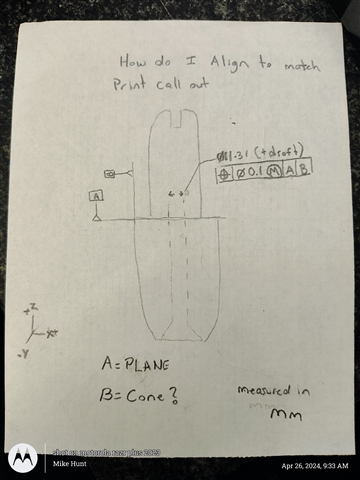 How do I Align to match
Print call out
Ø11.31 (+draft)
⌖ Ø0.1 Ⓜ A B
B
A
+Z
X+
-Y
A = PLANE
B = Cone?
measured in
mm
shot on motorola razr plus 2023
Mike Hunt
Apr 26, 2024, 9:33 AM